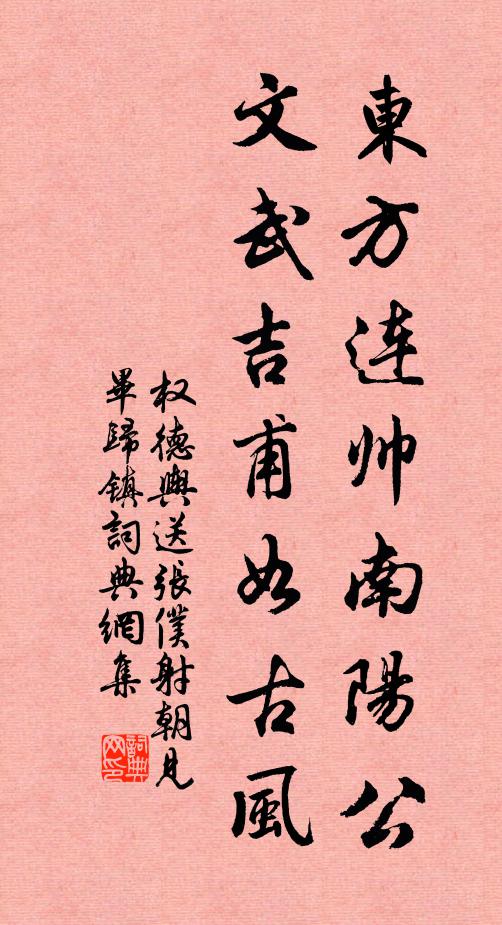 東方连帅南陽公
文武吉甫如古風
权德輿送張僕射朝見
畢歸镇詞典網集
詞典
网印